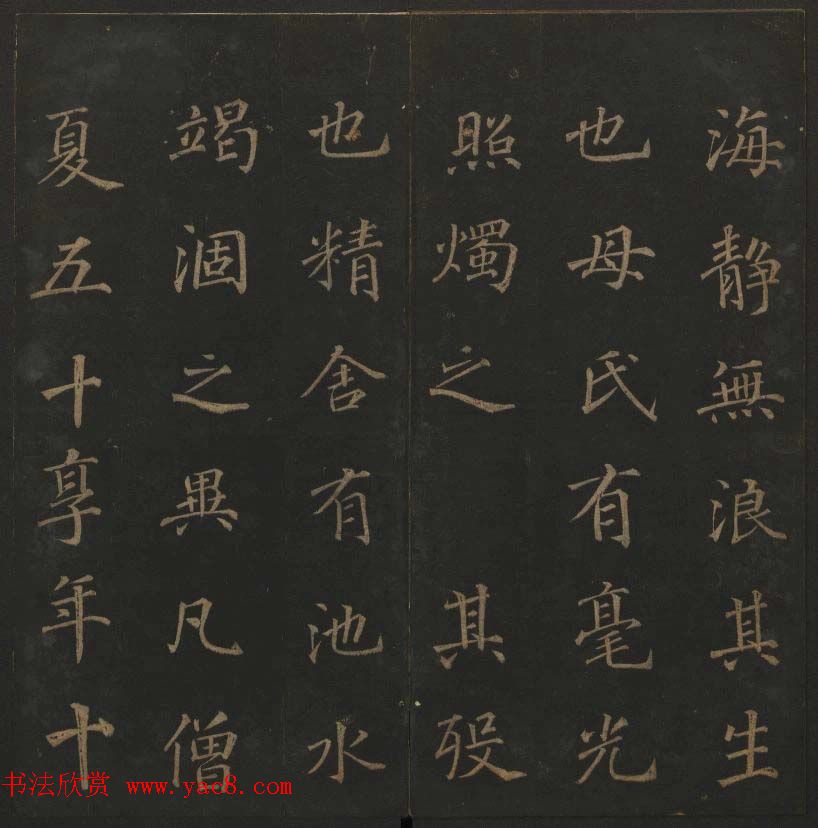 海静無浪其生
也母氏有毫光
照燭之 其歿
也精舍有池水
竭涸之異凡僧
夏五十享年十
书法欣赏 www.yac8.com